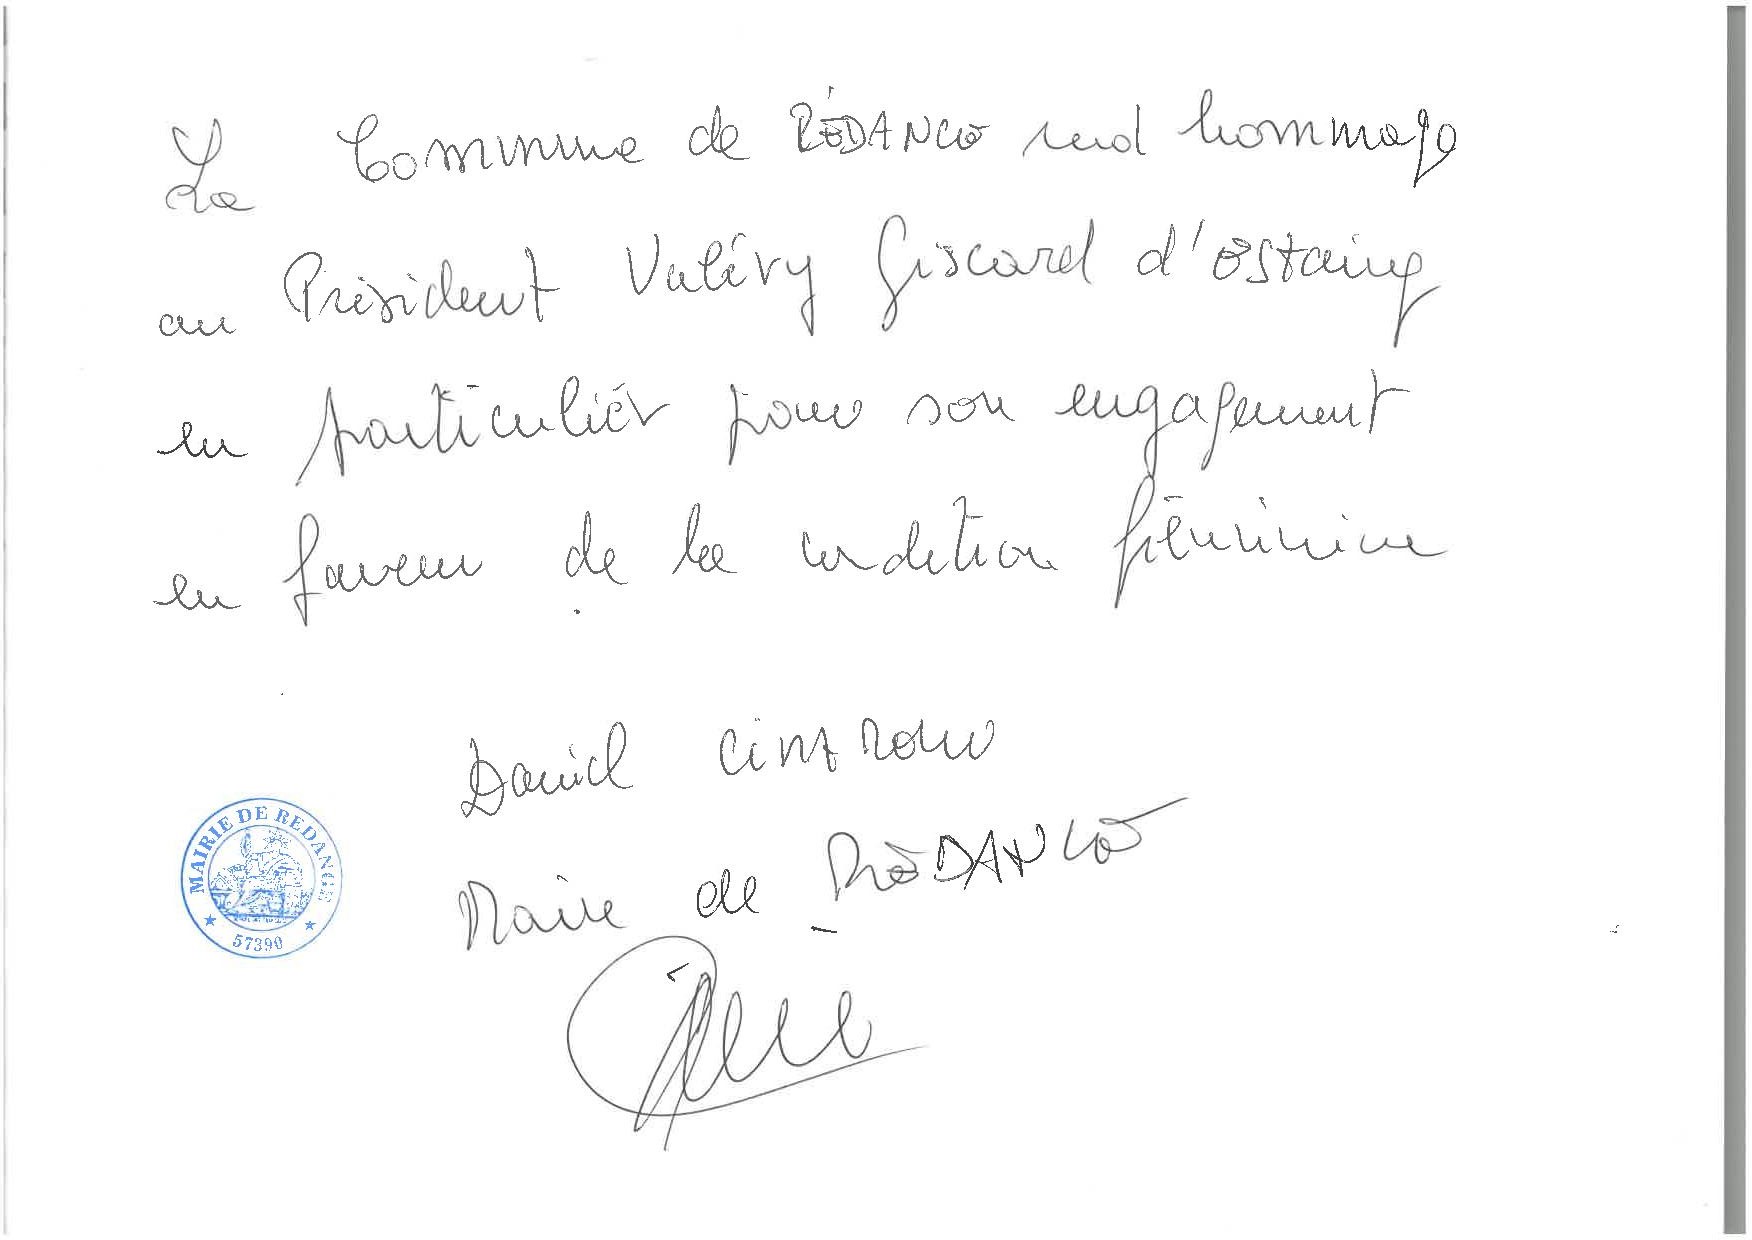 La Commune de RÉDANGE rend hommage
au Président Valéry Giscard d'Estaing
en particulier pour son engagement
en faveur de la condition féminine
Daniel CIMAROLI
Maire de RÉDANGE
MAIRIE DE REDANGE
57390